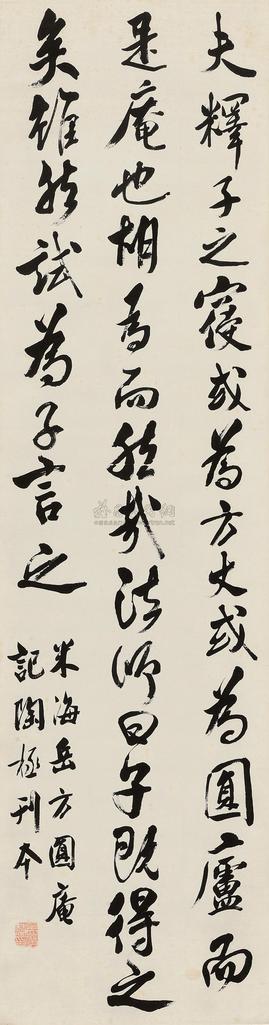 夫釋子之寢或為方丈或為圓廬而
是庵也胡為而然哉法師曰子既得之
矣雖然試為子言之
米海岳方圓庵
記陶拯刊本